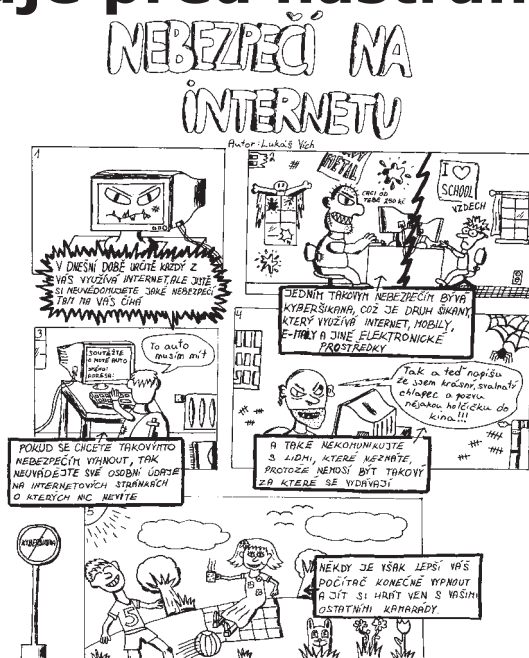 NEBEZPEČÍ NA
INTERNETU
Autor: Lukáš Vích
1
V DNEŠNÍ DOBĚ URČITĚ KAŽDÝ Z
VÁS VYUŽÍVÁ INTERNET, ALE JISTĚ
SI NEUVĚDOMUJETE JAKÉ NEBEZPEČÍ
TAM NA VÁS ČÍHÁ
2
METAL
CHCI OD
TEBE 250 KČ
I ♡
SCHOOL
VZDECH
JEDNÍM TAKOVÝM NEBEZPEČÍM BÝVÁ
KYBERŠIKANA, COŽ JE DRUH ŠIKANY,
KTERÝ VYUŽÍVÁ INTERNET, MOBILY,
E-MAILY A JINÉ ELEKTRONICKÉ
PROSTŘEDKY
3
SOUTĚŽTE
O NOVÉ AUTO
JMÉNO:
ADRESA:
To auto
musím mít
POKUD SE CHCETE TAKOVÝMTO
NEBEZPEČÍM VYHNOUT, TAK
NEUVÁDĚJTE SVÉ OSOBNÍ ÚDAJE
NA INTERNETOVÝCH STRÁNKÁCH
O KTERÝCH NIC NEVÍTE
4
Tak a teď napíšu
že jsem krásný, svalnatý
chlapec a pozvu
nějakou holčičku do
kina!!!
A TAKÉ NEKOMUNIKUJTE
S LIDMI, KTERÉ NEZNÁTE,
PROTOŽE NEMUSÍ BÝT TAKOVÝ
ZA KTERÉ SE VYDÁVAJÍ
5
KYBERŠIKANA
5
NĚKDY JE VŠAK LEPŠÍ VÁŠ
POČÍTAČ KONEČNĚ VYPNOUT
A JÍT SI HRÁT VEN S VAŠIMI
OSTATNÍMI KAMARÁDY.